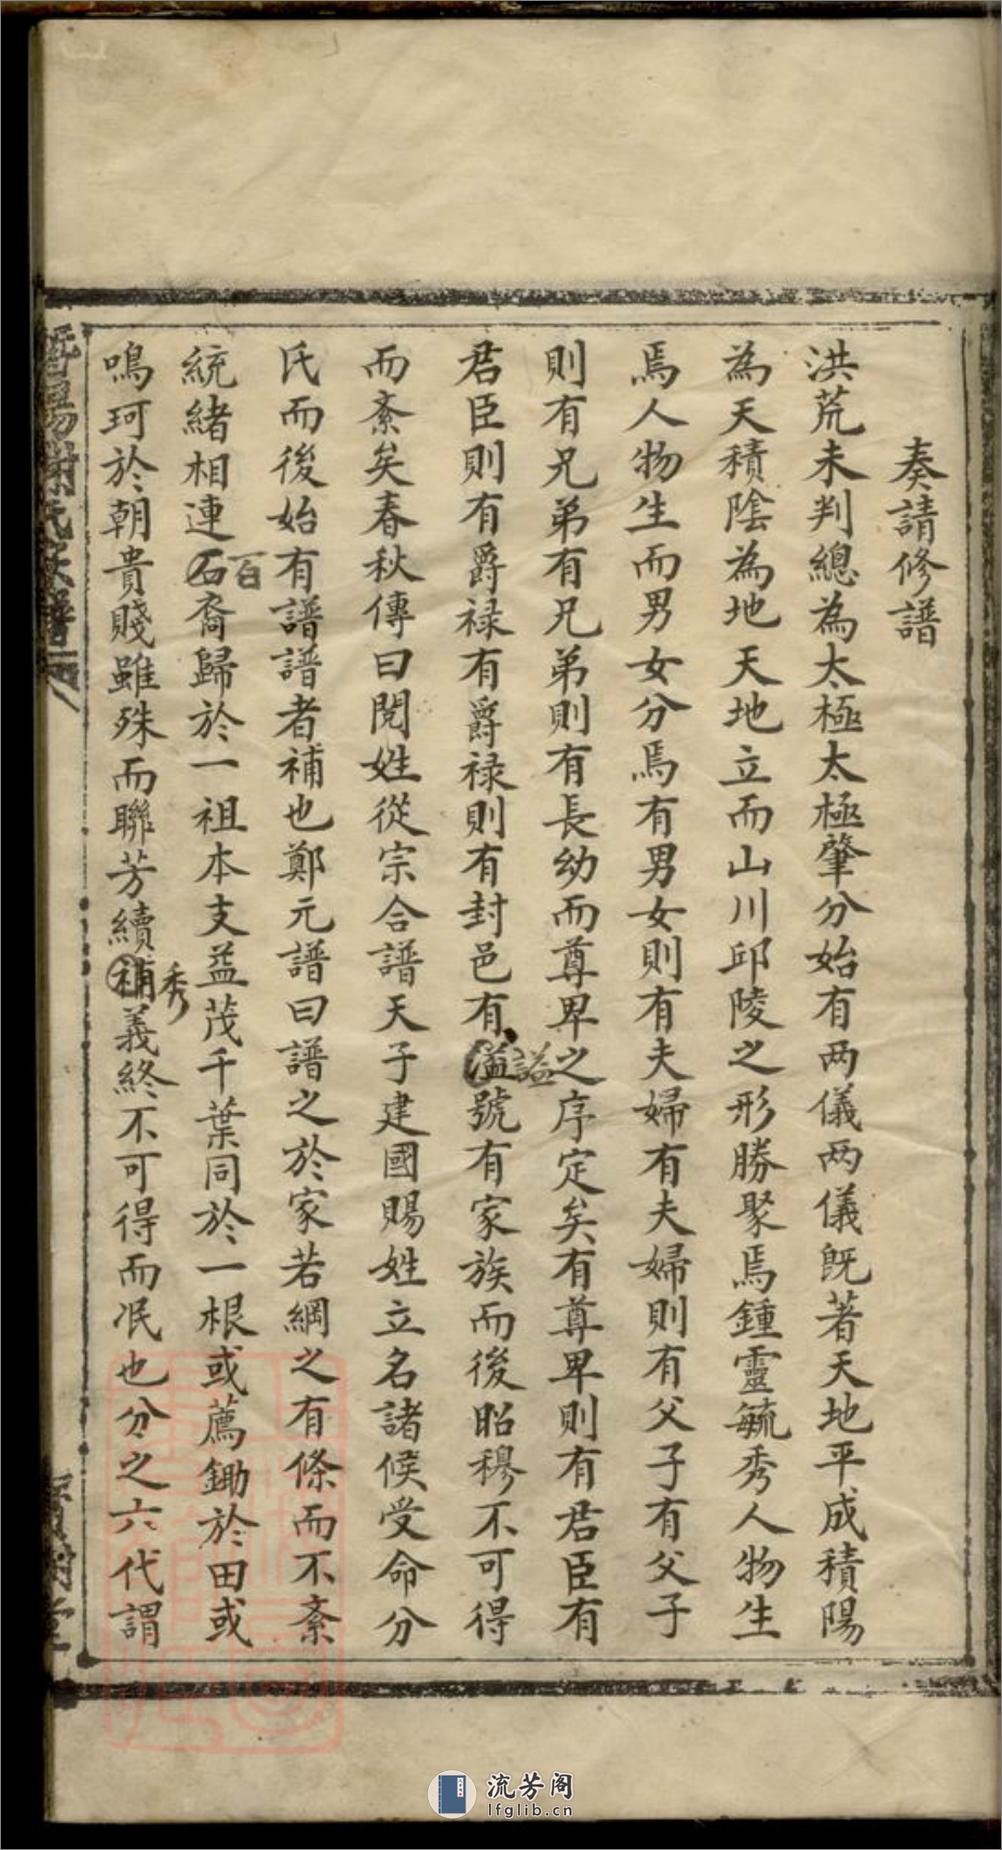 奏請修譜
洪荒未判總為太極太極肇分始有两儀两儀既著天地平成積陽
為天積陰為地天地立而山川邱陵之形勝聚焉鍾靈毓秀人物生
焉人物生而男女分焉有男女則有夫婦有夫婦則有父子有父子
則有兄弟有兄弟則有長幼而尊卑之序定矣有尊卑則有君臣有
君臣則有爵禄有爵禄則有封邑有溢號有家族而後昭穆不可得
謚
而紊矣春秋傳曰閱姓從宗合譜天子建國賜姓立名諸候受命分
氏而後始有譜譜者補也鄭元譜曰譜之於家若綱之有條而不紊
統緒相連石裔歸於一祖本支益茂千葉同於一根或薦鋤於田或
百
鳴珂於朝貴賤雖殊而聯芳續補義終不可得而泯也分之六代謂
秀
暨陽謝氏宗譜
寶樹堂
流芳阁
lfglib.cn